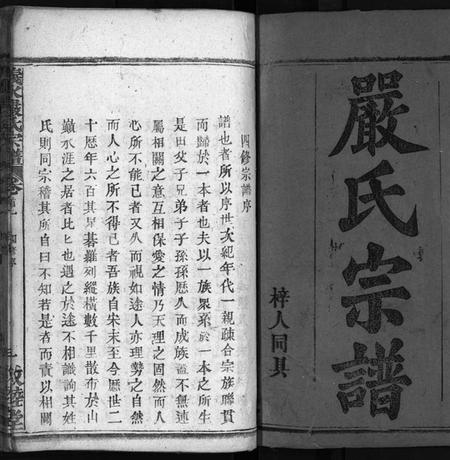 嚴氏宗譜
梓人同具
四修宗譜序
譜也者所以序世次紀年代一親疎合宗族聯貫
而歸於一本者也夫以一族衆系於一本之所生
是由父子兄弟子子孫孫歷久而成族誼不無連
屬相關之意互相保愛之情乃天理之固然而人
心所不能已者又久而視如途人亦理勢之自然
而人心之所不得已者吾族自宋末至今歷世二
十歷年六百其星碁羅列縱橫數千里散布於山
巔水涯之居者比比也遇之於途不相識詢其姓
氏則同宗稽其所自曰不知若是者而責以相關
嚴氏宗譜